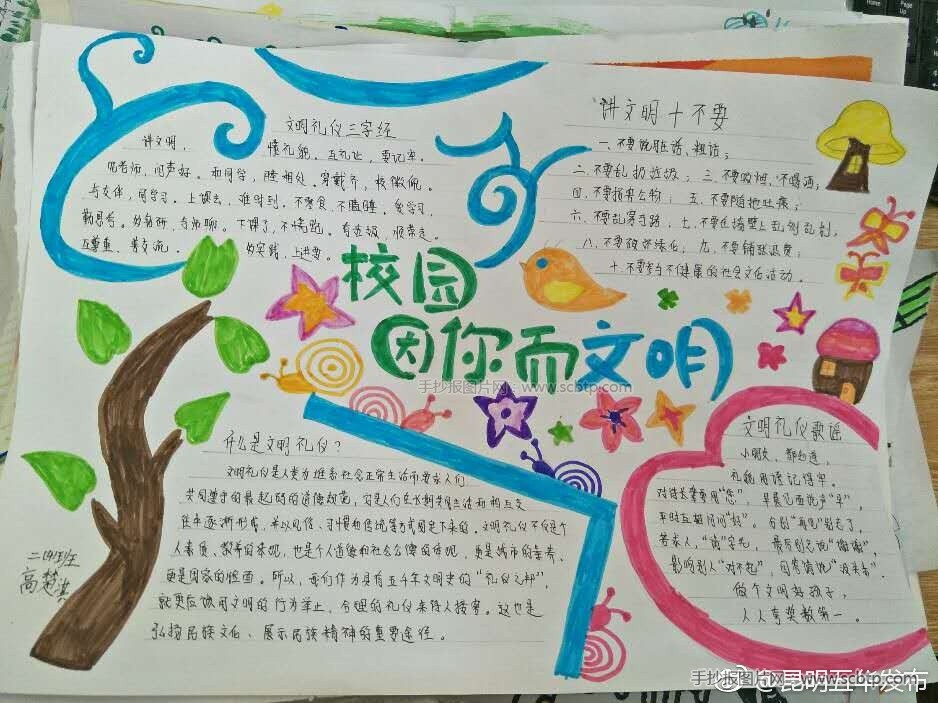 文明礼仪三字经
讲文明，懂礼貌，互礼让，要记牢。
见老师，问声好。和同学，睦相处。穿戴齐，校徽佩。
与交伴，同学习。上课去，准时到。不零食，不瞌睡。爱学习，
勤思考。下课了，不疯跑。有注级，顺常走。
互尊重，善交流。勤实践，上进要。
讲文明十不要
一、不要说脏话，粗话；
二、不要乱扔垃圾；三、不要吸烟，不喝酒；
四、不要损害公物；五、不要随地吐痰；
六、不要乱穿马路；七、不要在墙壁上乱刻乱划；
八、不要破坏绿化；九、不要铺张浪费；
十、不要参与不健康的社会文化活动。
校园
因你而文明
手抄报图片网：www.scbtp.com
什么是文明礼仪？
文明礼仪是人类为维系社会正常生活而要求人们
共同遵守的最起码的道德规范，它是人们在长期共同生活和相互交
往中逐渐形成，并以风俗、习惯和传统等方式固定下来的。文明礼仪不仅是个
人素质、教养的体现，也是个人道德和社会公德的体现，更是城市的
更是国家的脸面。所以，我们作为具有五千年文明史的“礼仪之邦”，
就更应该用文明的行为举止，合理的礼仪来待人接客。这也是
弘扬民族文化、展示民族精神的重要途径。
文明礼仪歌谣
小朋友，都知道，
礼貌用语记得牢。
对待长辈要用“您”，早晨见面说声“早”，
平时互相问问“好”。分别“再见”别忘了，
若求人，“请”字先，最后别忘说“谢谢”，
影响别人“对不起”，回答请说“没关系”。
做个文明好孩子，
人人夸奖数第一。
二班
高楚
手抄报图片网：www.scbtp.com
@昆明五华发布